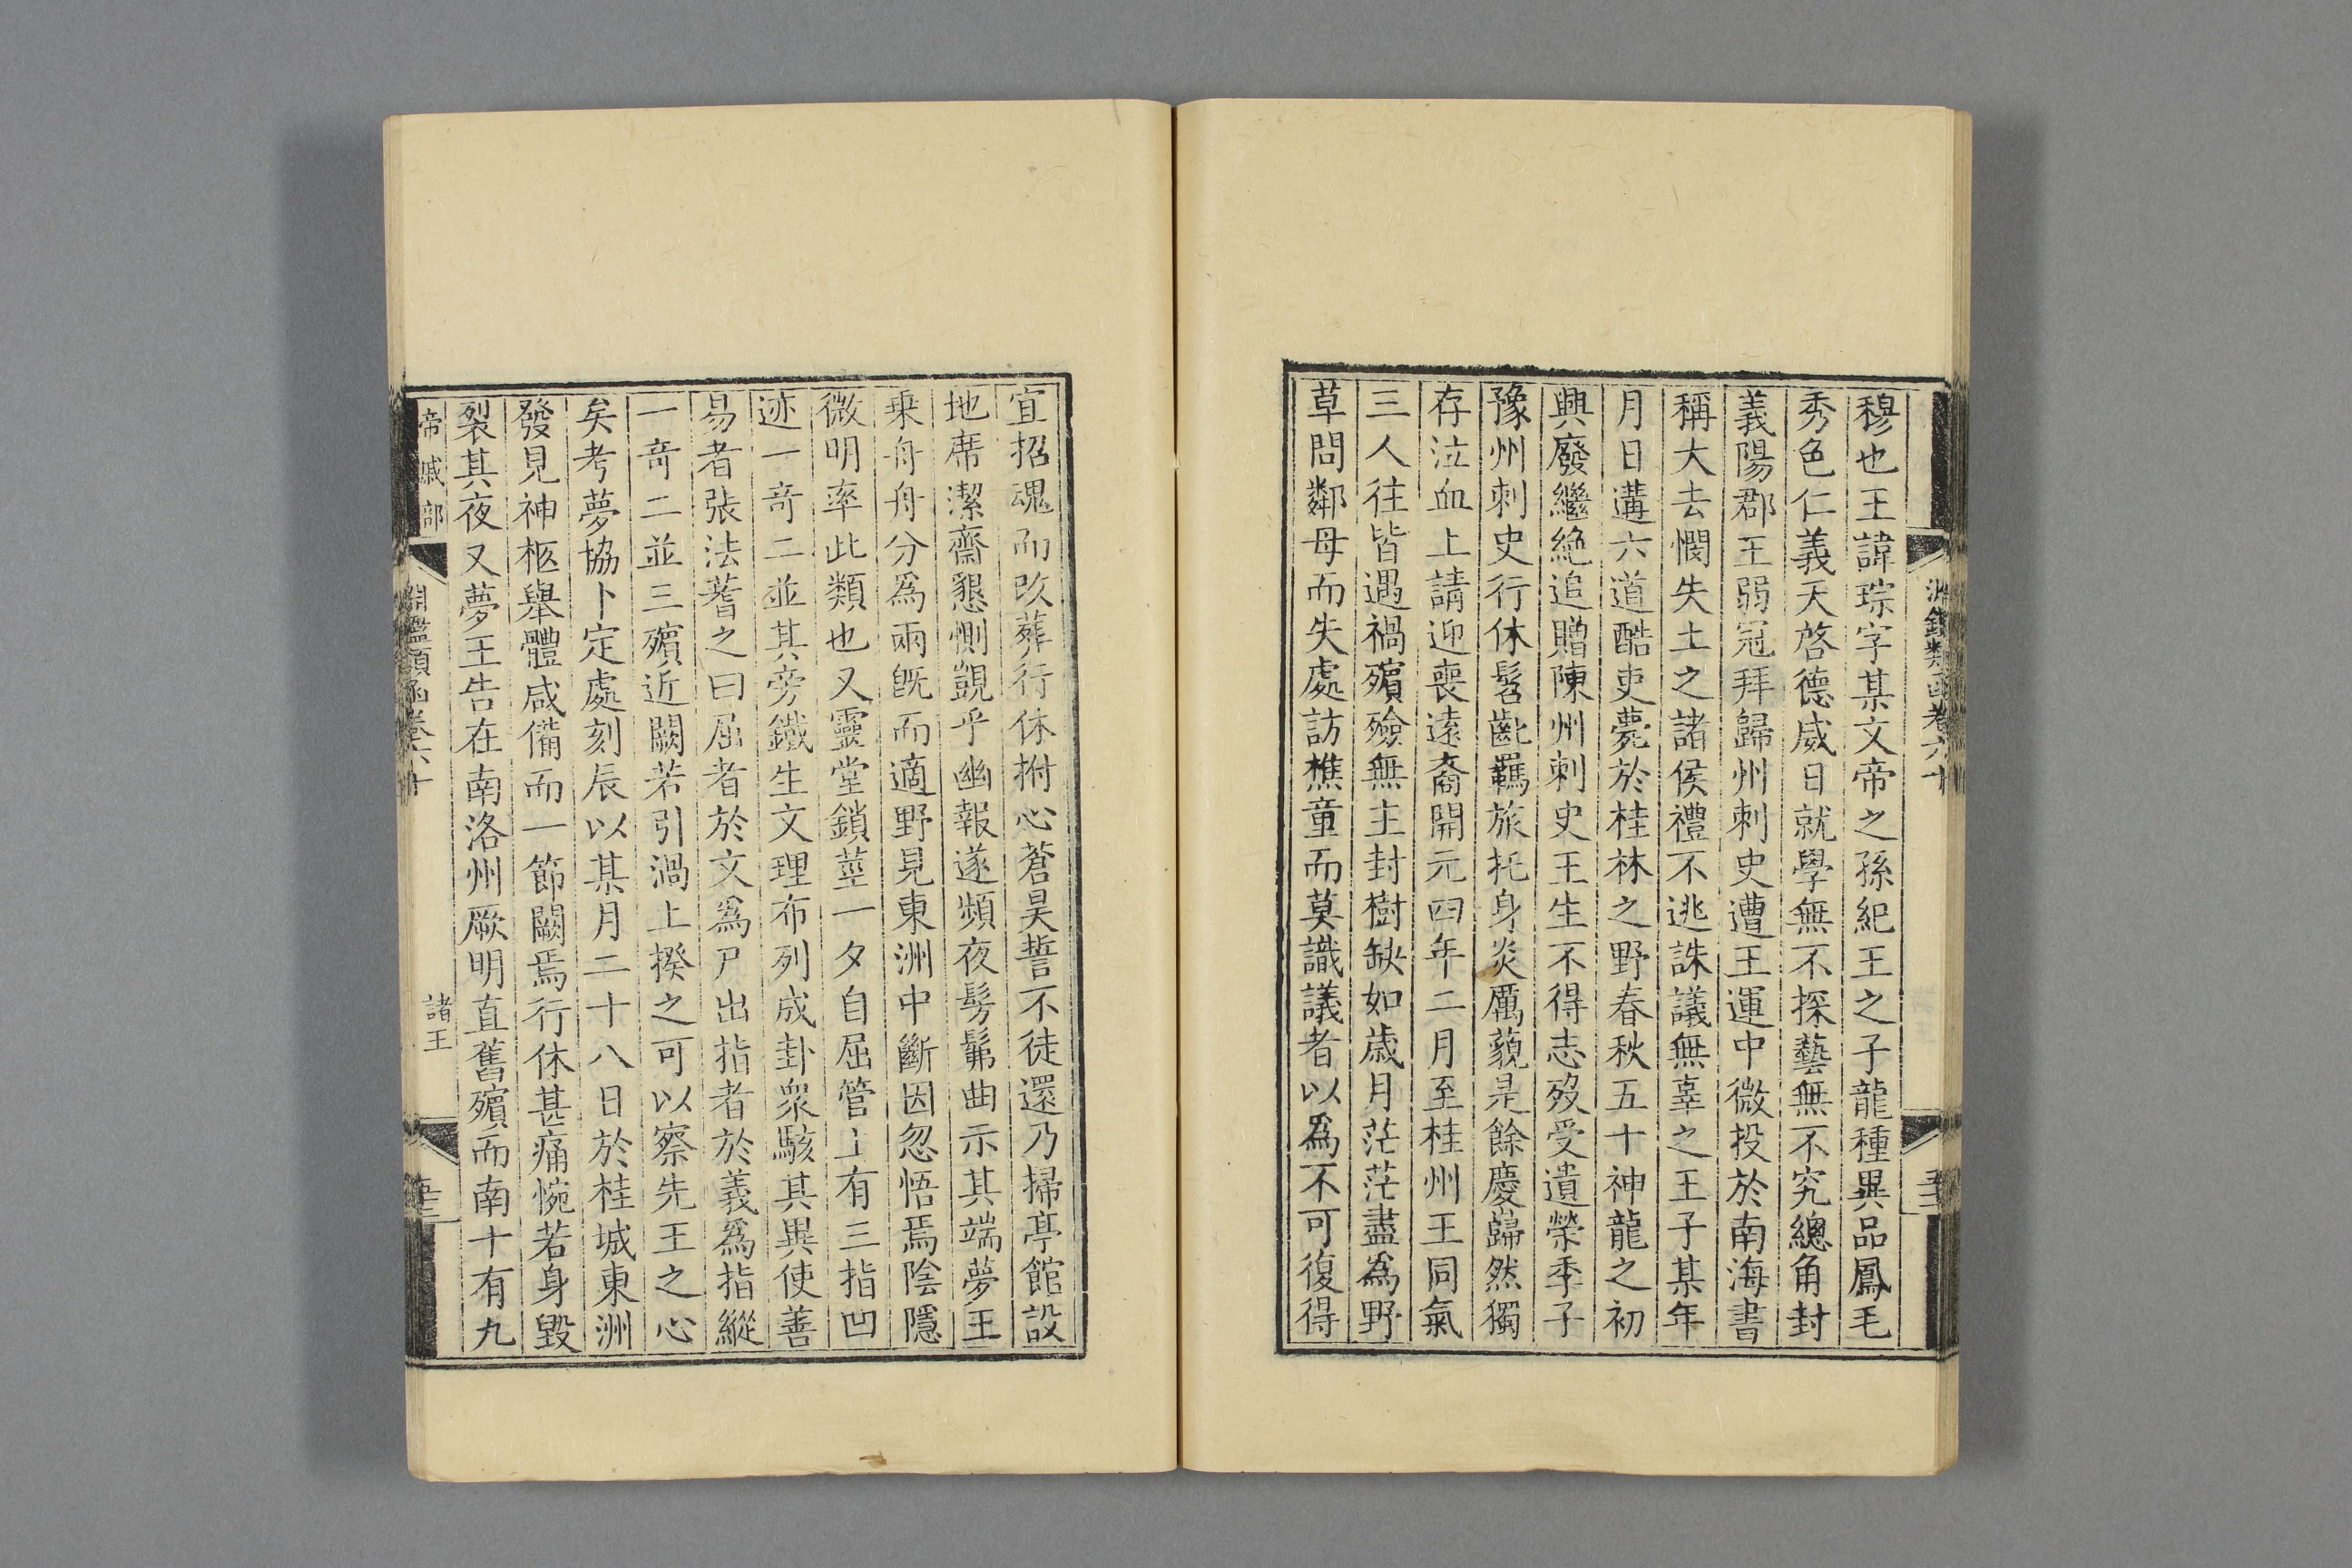 淵鑑類函卷六十
穆也王諱琮字某文帝之孫紀王之子龍種異品鳳毛
秀色仁義天啓德威日就學無不探藝無不究總角封
義陽郡王弱冠拜歸州刺史遭王運中微投於南海書
稱大去憫失土之諸侯禮不逃誅議無辜之王子某年
月日遘六道酷吏薨於桂林之野春秋五十神龍之初
興廢繼絶追贈陳州刺史王生不得志歿受遺榮季子
豫州刺史行休髫齔羈旅托身炎厲藐是餘慶巋然獨
存泣血上請迎喪遠裔開元四年二月至桂州王同氣
三人往皆遇禍殯殮無主封樹缺如歲月茫茫盡為野
草問鄰母而失處訪樵童而莫識議者以為不可復得
宜招魂而改葬行休拊心蒼昊誓不徒還乃掃亭館設
地席潔齋懇惻覬乎幽報遂頻夜髣髴曲示其端夢王
乗舟舟分為兩旣而適野見東洲中斷因忽悟焉陰隱
微明率此類也又靈堂鎖莖一夕自屈管上有三指凹
迹一奇二並其旁鐵生文理布列成卦衆駭其異使善
易者張法蓍之曰屈者於文為尸出指者於義為指縱
一奇二並三殯近闕若引渦上揆之可以察先王之心
矣考夢協卜定處刻辰以某月二十八日於桂城東洲
發見神柩舉體咸備而一節闕焉行休甚痛惋若身毀
裂其夜又夢王告在南洛州厥明直舊殯而南十有九
帝戚部
淵鑑類函卷六十
諸王